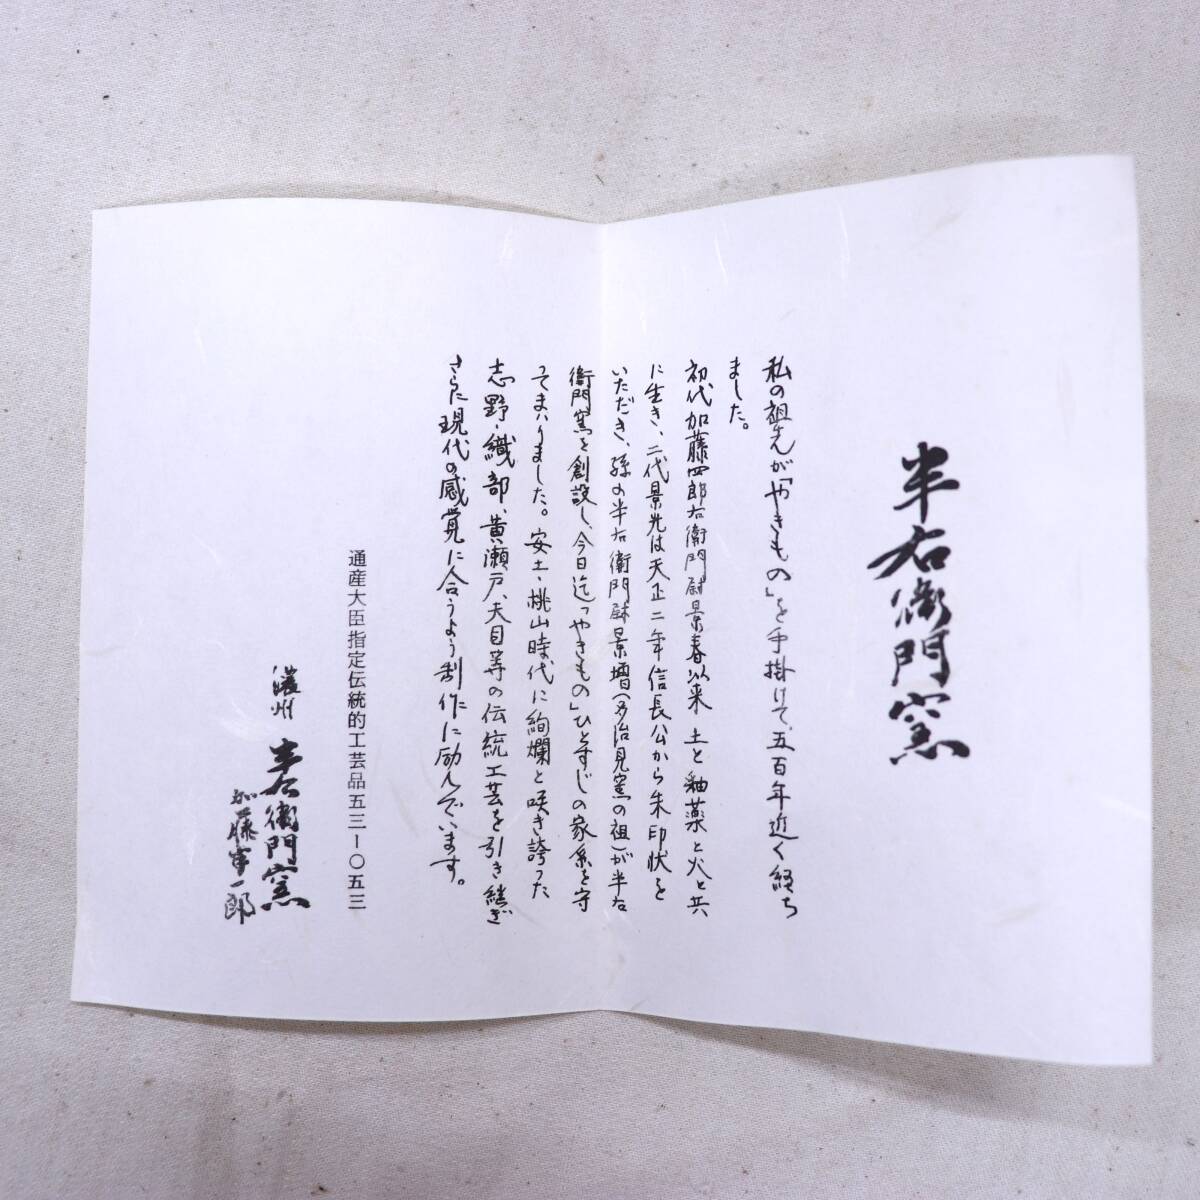 半右衛門窯
私の祖先が「やきもの」を手掛けて、五百年近く経ち
ました。
初代加藤四郎右衛門尉景春以来 土と釉薬と火と共
に生き、二代景光は天正二年信長公から朱印状を
いただき、孫の半右衛門尉景増(多治見窯の祖)が半右
衛門窯を創設し、今日迄「やきもの」ひとすじの家系を守
ってまいりました。安土・桃山時代に絢爛と咲き誇った
志野・織部、黄瀬戸、天目等の伝統工芸を引き継ぎ
さらに現代の感覚に合うよう制作に励んでいます。
通産大臣指定伝統的工芸品五三ー〇五三
濃州 半右衛門窯
加藤 一郎